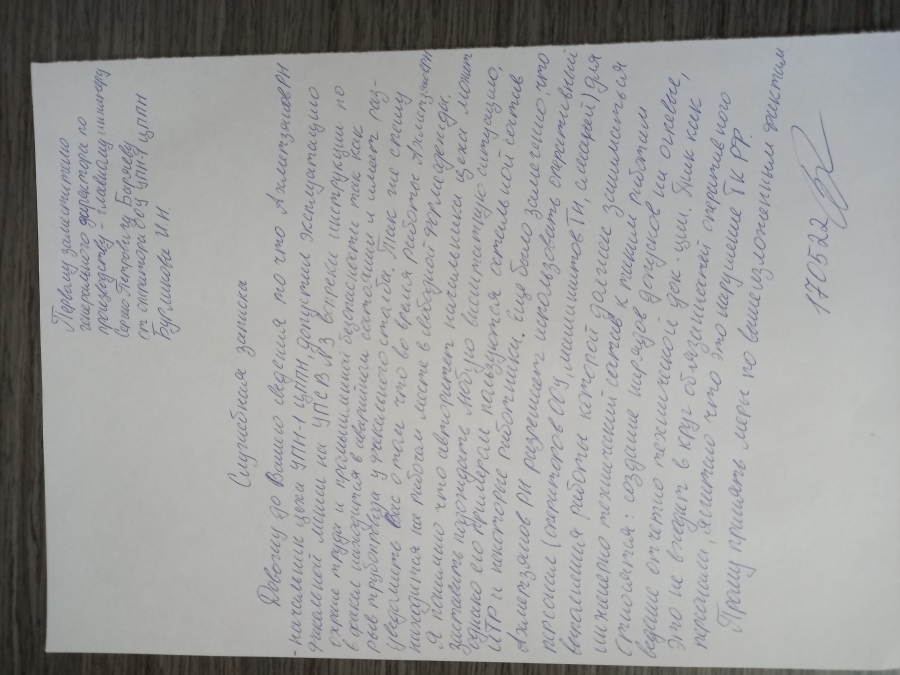 Первому заместителю
генерального директора по
производству - главному инженеру
Сергею Петровичу Боряеву
от оператора ООУ УПН-1 ЦППН
Бурлакова И.И.
Служебная записка
Довожу до Вашего сведения то что Ахметзянов РИ
- начальник цеха УПН-1 ЦППН, допустил эксплуатацию
факельной линии на УПСВ №3 вопреки инструкции по
охране труда и промышленной безопасности так как
факел находится в аварийном состоянии и имеет раз-
рыв трубопровода у факельного столба. Так же спешу
уведомить Вас о том что во время работы Ахметзянов РИ
находится на рабочем месте в свободной форме одежды.
Я понимаю что авторитет начальника цеха может
заставить переждать любую неприятную ситуацию,
однако его примером пользуется остальной состав
ИТР и некоторые работники. Еще было замечено что
Ахметзянов РИ разрешает использовать оперативный
персонал (операторов ООУ, машинистов ТН, слесарей) для
выполнения работы которой должен заниматься
инженерно технический состав к таким работам
относятся: создание нарядов допусков на огневые,
ведение отчетно технической док-ции. Так как
это не входит в круг обязанностей оперативного
персонала, я считаю что это нарушение ТК РФ.
Прошу принять меры по вышеизложенным фактам
170522